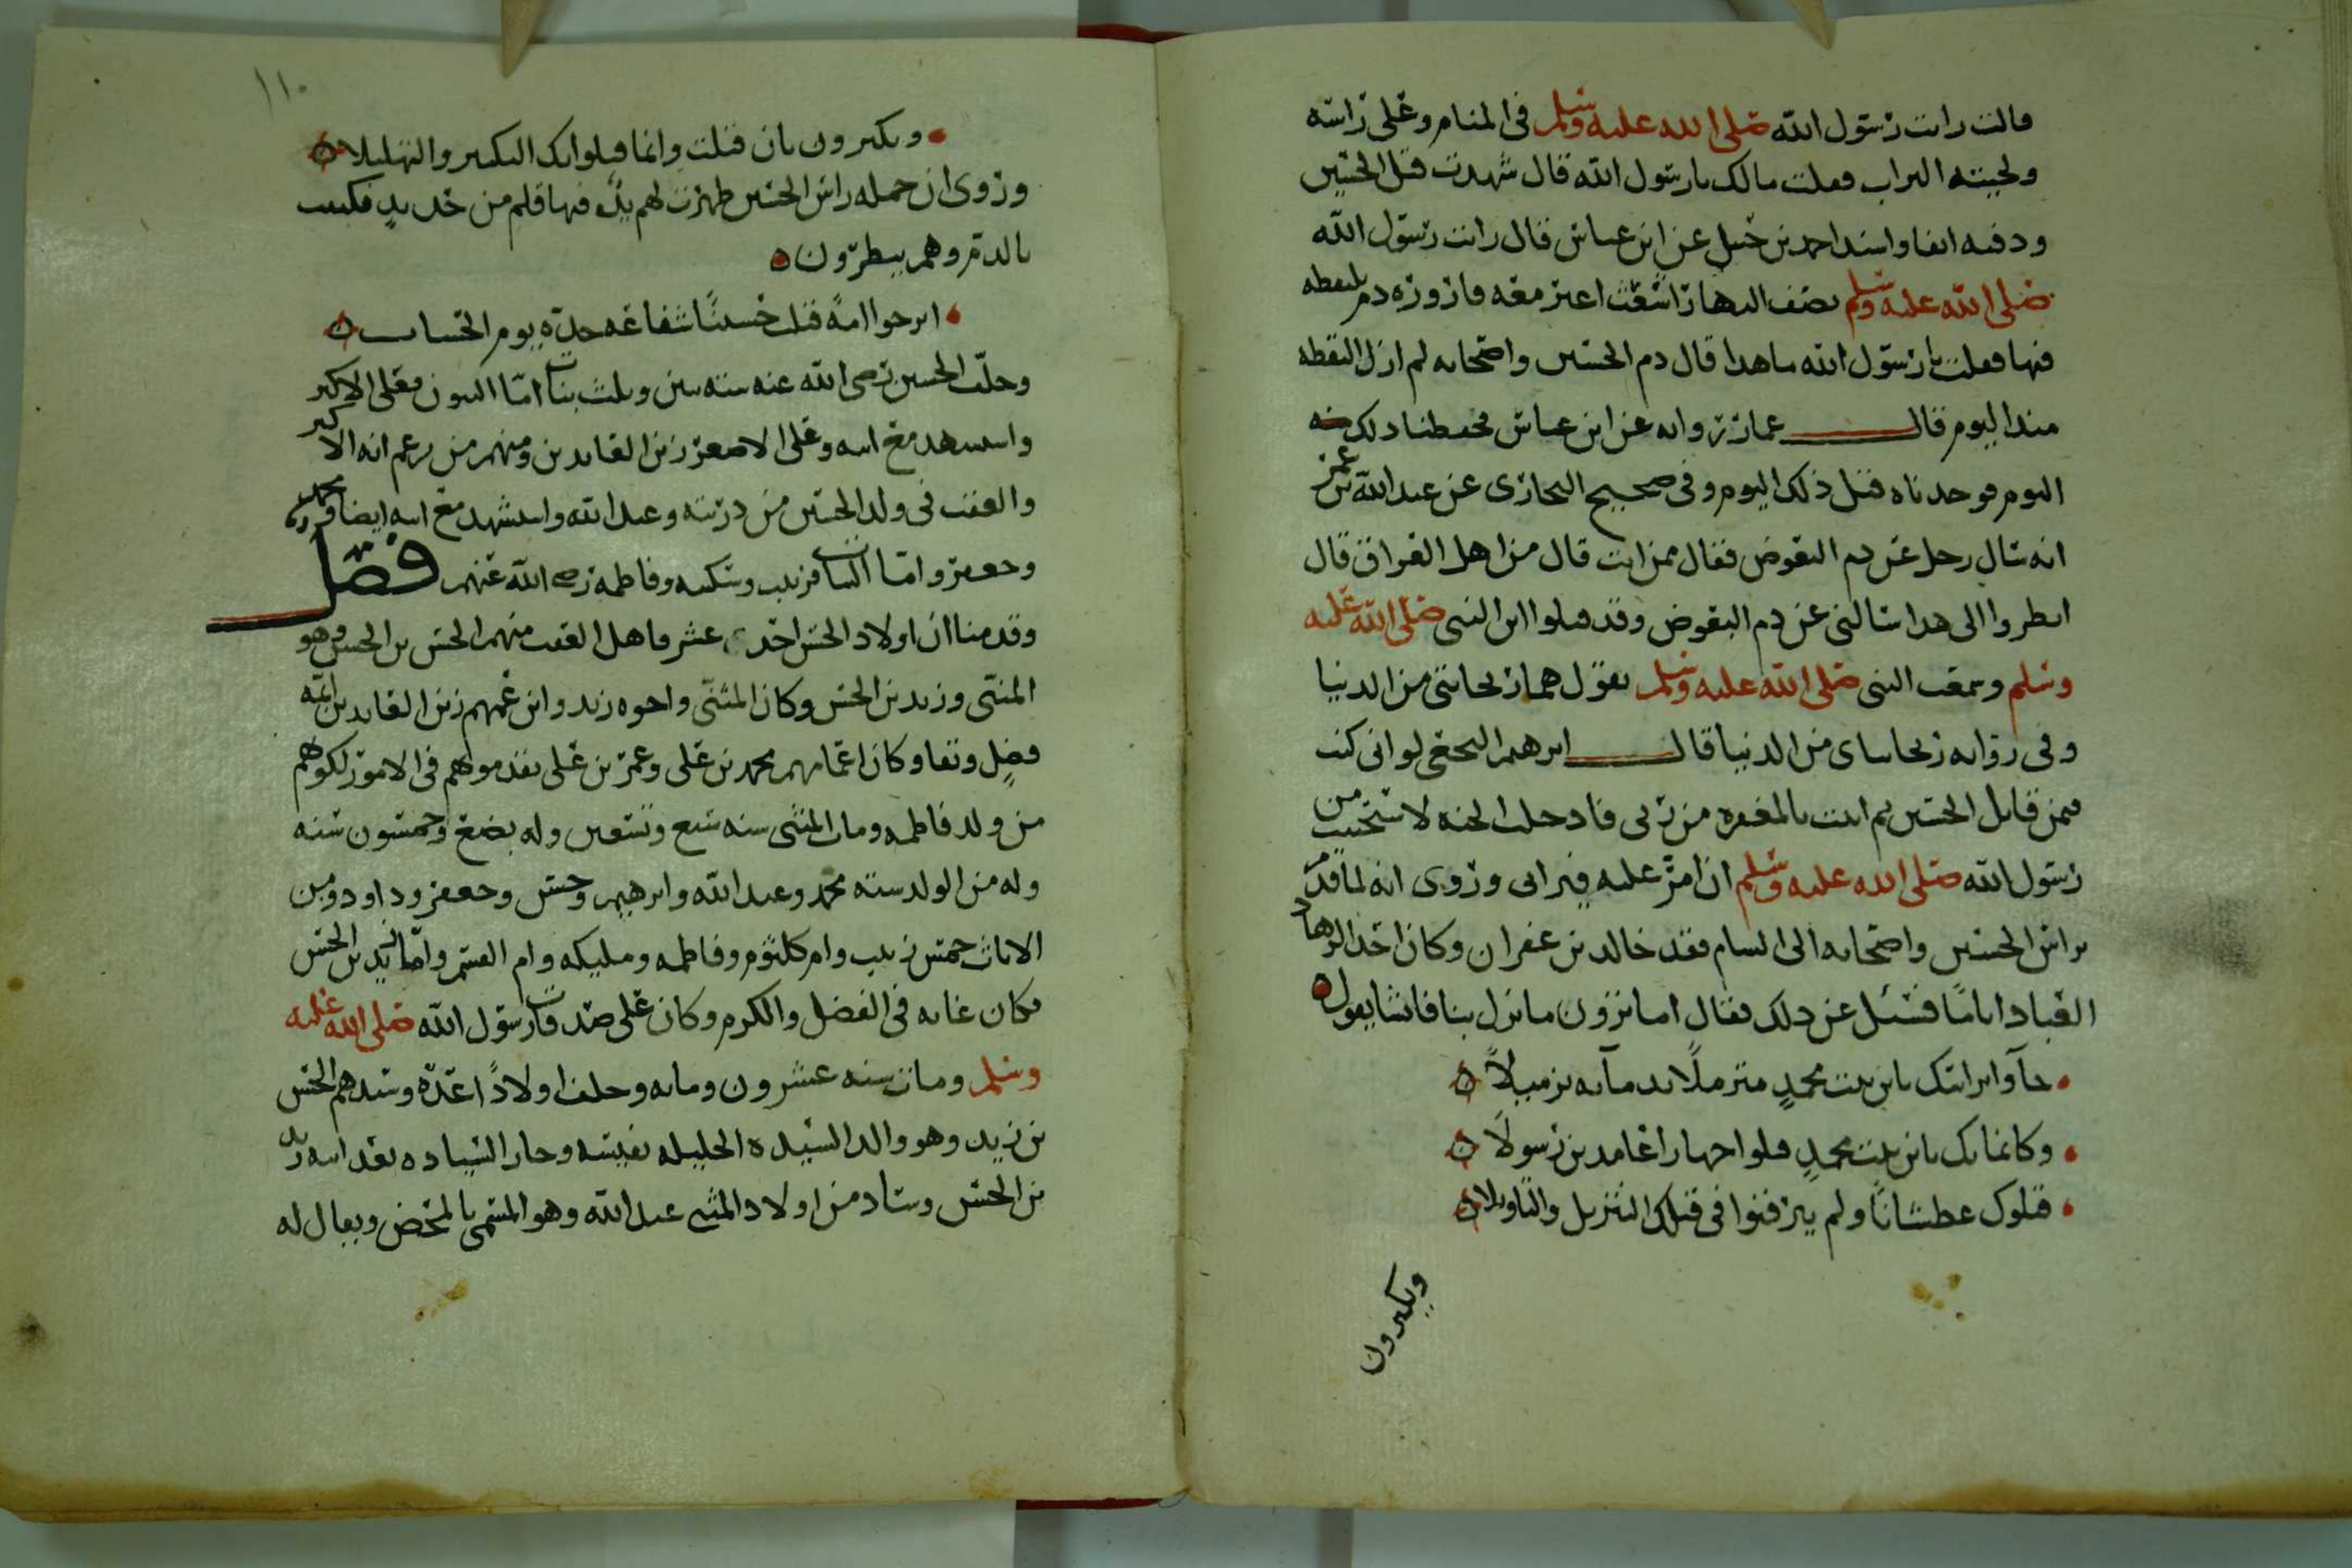 قالت رايت رسول الله صلى الله عليه وسلم في المنام وعلى راسه
ولحيته التراب فقلت مالك يا رسول الله قال شهدت قتل الحسين
ودفنه انفا واسند احمد بن حنبل عن ابن عباس قال رايت رسول الله
صلى الله عليه وسلم نصف النهار اشعث اغبر معه قارورة دم يلتقطه
فيها فقلت يا رسول الله ما هذا قال دم الحسين واصحابه لم ازل التقطه
منذ اليوم قال عمار راويه عن ابن عباس فحفظنا ذلك
اليوم فوجدناه قتل ذلك اليوم وفي صحيح البخاري عن عبد الله بن عمر
انه سال رجل عن دم البعوض فقال ممن انت قال من اهل العراق قال
انظروا الى هذا سالني عن دم البعوض وقد قتلوا ابن النبي صلى الله عليه
وسلم وسمعت النبي صلى الله عليه وسلم يقول هما ريحانتي من الدنيا
وفي رواية ريحانتاي من الدنيا قال ابرهيم النخعي لو اني كنت
فيمن قاتل الحسين ثم اتيت بالمغفرة من ربي فادخلت الجنة لاستحييت من
رسول الله صلى الله عليه وسلم ان امر عليه فيراني وروى انه لما قدم
براس الحسين واصحابه الى الشام فقد خالد بن عفران وكان احد الزهاد
العباد اياما فسئل عن ذلك فقال اما ترون ما نزل بنا فانشا يقول
جآوا براسك يابن بنت محمد متزملًا بدمآئه تزميلاً
وكانما بك يابن بنت محمد قتلوا جهارا عامدين رسولاً
قتلوك عطشانًا ولم يترقبوا في قتلك التنزيل والتاويلا
ويكبرون
١١٠
ويكبرون بان قتلت وانما قتلوا بك التكبير والتهليلا
وروى ان حمله راس الحسين ظهرت لهم يد فيها قلم من حديد فكتبت
بالدم وهم ينظرون
اترجوا امةً قتلت حسينًا شفاعة جده يوم الحساب
وخلف الحسين رضى الله عنه ستة بنين وثلث بنات امّا البنون فعلى الاكبر
واستشهد مع ابيه وعلى الاصغر زين العابدين ومنهم من يزعم انه الاكبر
والعقب في ولد الحسين من ذريته وعبد الله واستشهد مع ابيه ايضا ومحمد
وجعفر وامّا البنات فزينب وسكينه وفاطمه رضى الله عنهم فصل
وقدمنا ان اولاد الحسن احد عشر فاهل العقب منهم الحسن بن الحسن وهو
المثنى وزيد بن الحسن وكان المثنّى واخوه زيد وابن عمهم زين العابدين ائمة
فضلٍ وتقا وكان اعمامهم محمد بن على وعمر بن على يقدمونهم في الامور لكونهم
من ولد فاطمه ومات المثنى سنه سبع وتسعين وله بضع وخمسون سنه
وله من الولد ستة محمد وعبد الله وابرهيم وحسن وجعفر وداود ومن
الاناث خمس زينب وام كلثوم وفاطمه ومليكه وام القسم وامّا زيد بن الحسن
فكان غايه في الفضل والكرم وكان على صدقات رسول الله صلى الله عليه
وسلم ومات سنه عشرون ومايه وخلف اولادًا عدّه وسيدهم الحسن
بن زيد وهو والد السيده الجليله نفيسه وحاز السياده بعد ابيه زيد
بن الحسن وساد من اولاد المثنى عبد الله وهو المسمى بالمحض ويقال له